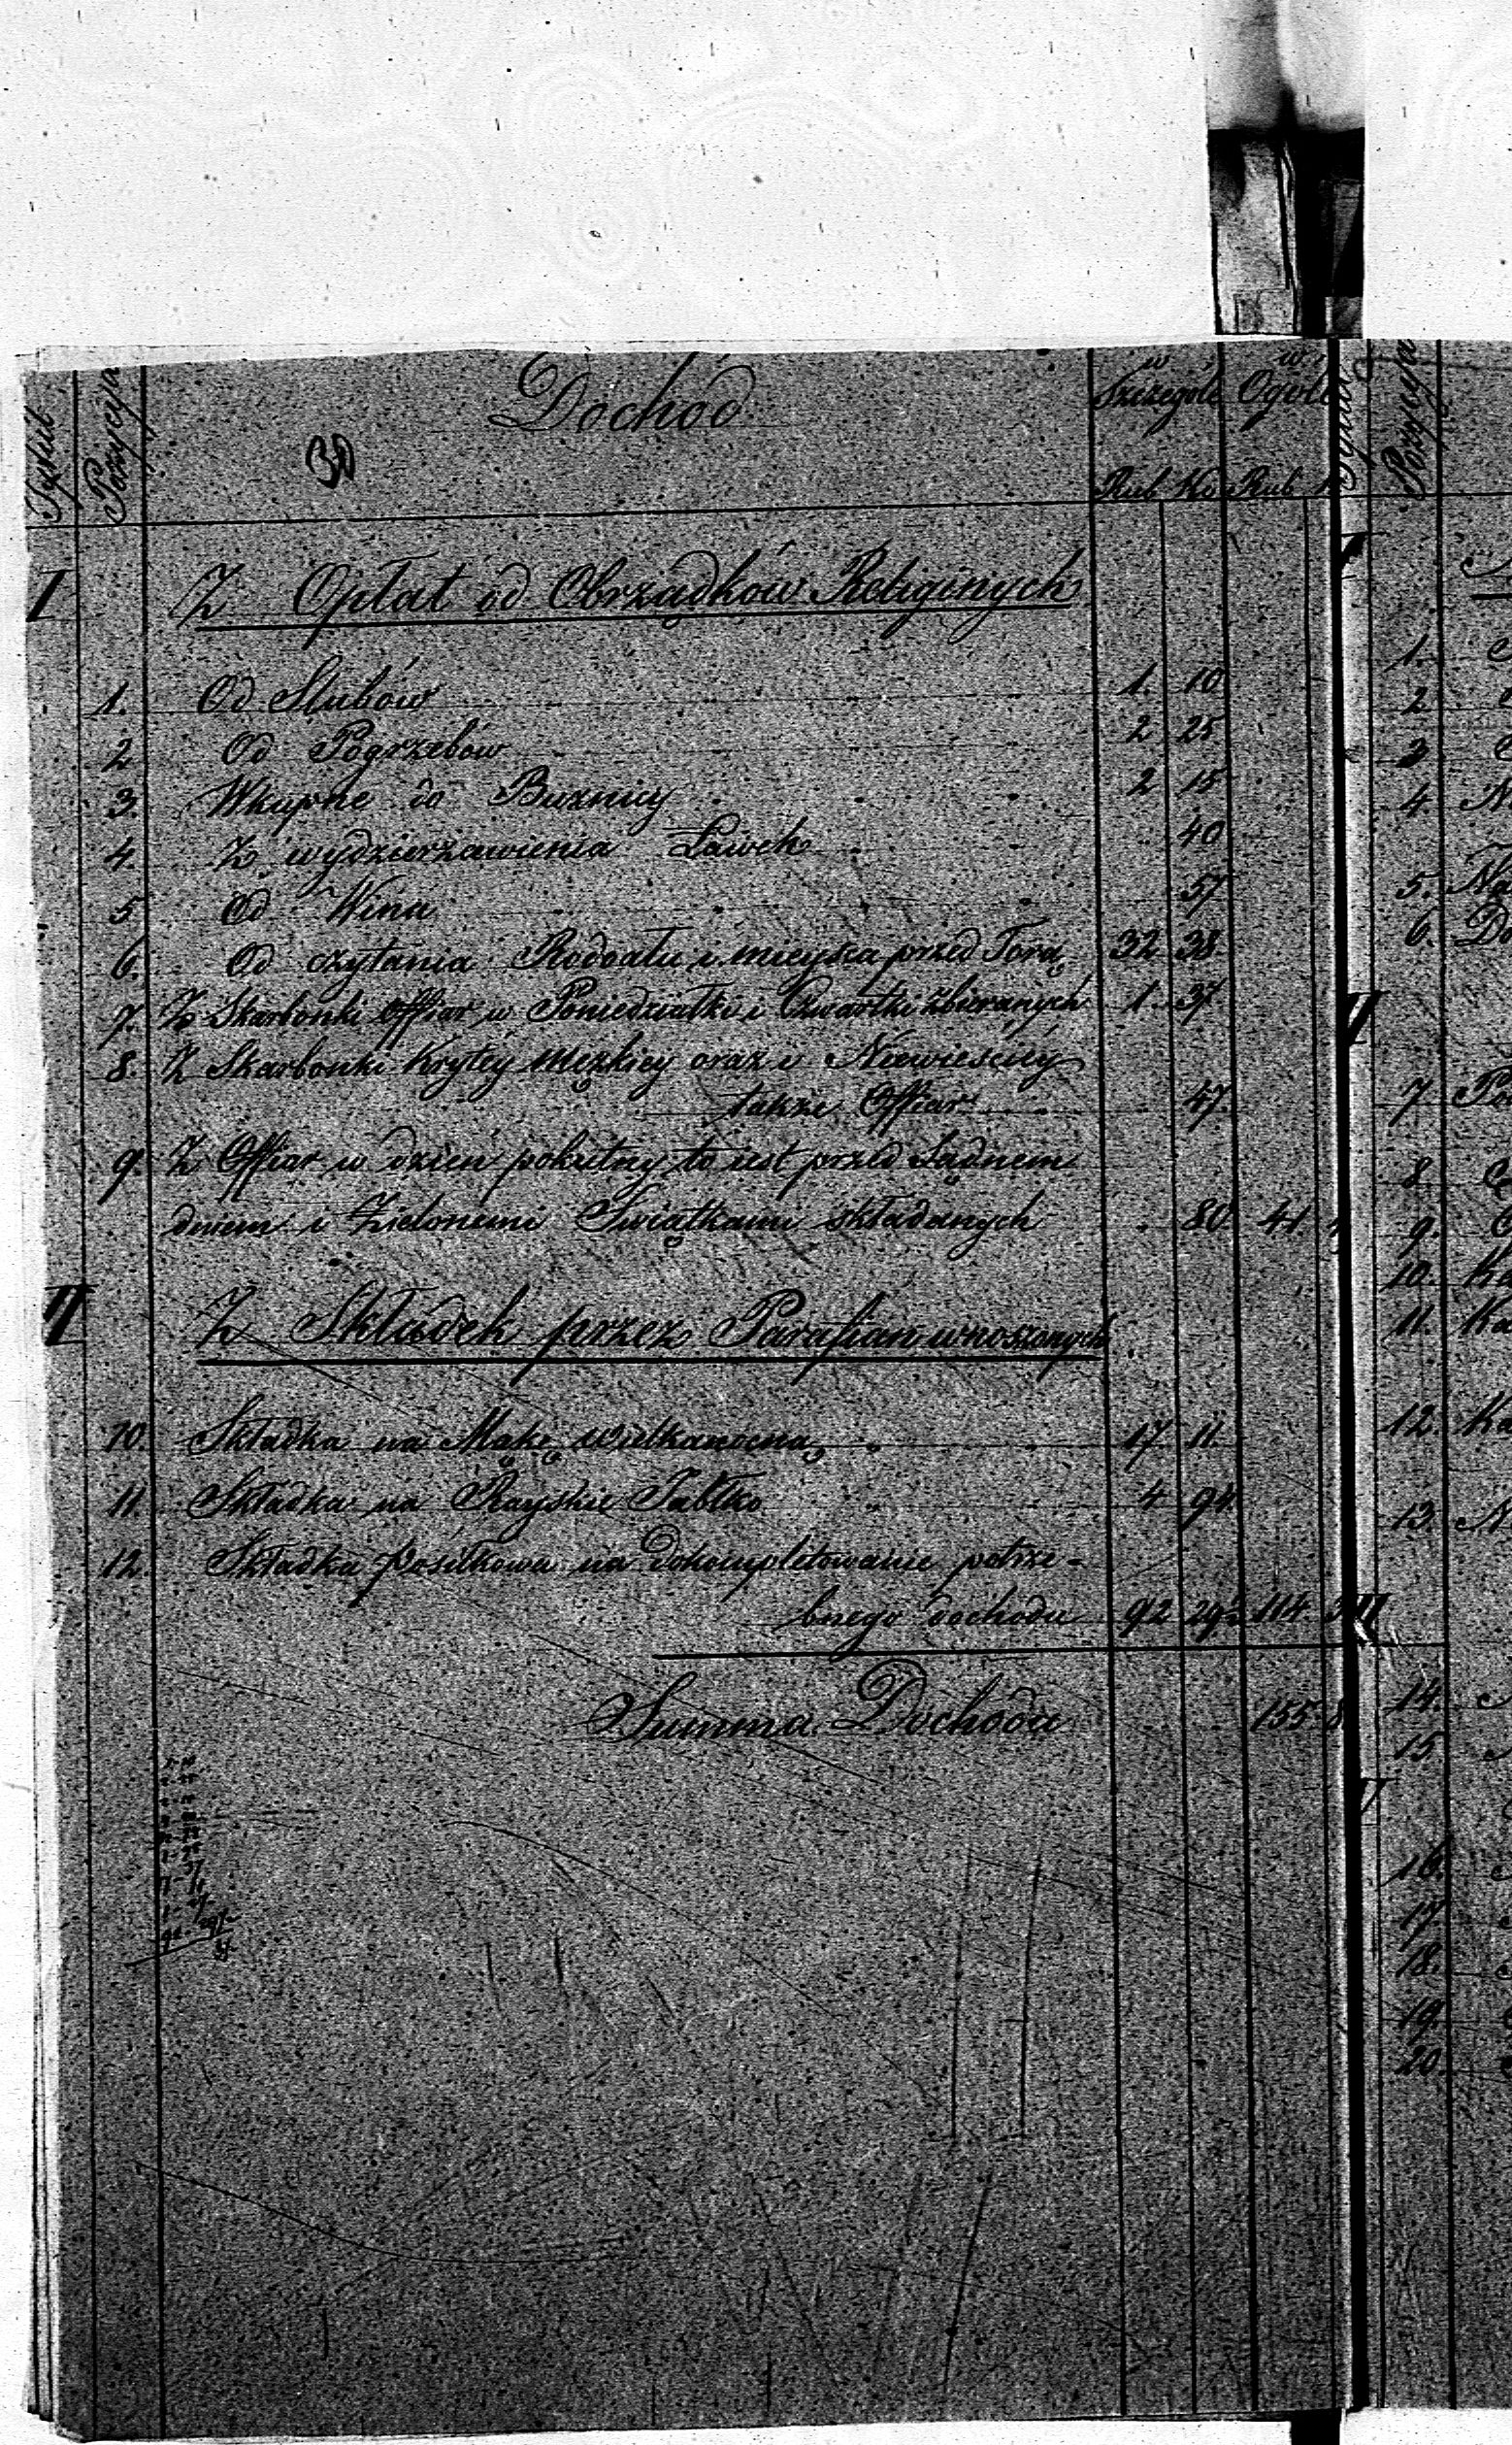 Tytuł Pozycyja Dochód w Szczególe w Ogóle
Rub Ko Rub
I Z Opłat od Obrządków Religijnych
1. Od Slubów 1. 10
2 Od Pogrzebów 2 25
3. Wkupne do Buznicy 2 15
4. Z wydzierzawienia Ławek 40
5 Od Wina 57
6. Od czytania Rodoału i mieysca przed Torą 32 38
7. Z Skarbonki Offiar w Poniedziałki i Czwartki zbieranych 1 37
8. Z Skarbonki Krytey męzkiey oraz i Niewieściey
także Offiar 47.
9. Z Offiar w dzień pokutny to iest przed Sądnem
dniem i Zielonemi Swiątkami składanych 80 41.
II Z Składek przez Parafian wnoszonych
10. Składka na Mąkę wielkanocną 17 11.
11. Składka na Rayskie Jabłko 4 94
12. Składka posiłkowa na dokompletowanie potrze-
bnego dochodu 92 29½ 114.
Summa Dochodu 155
Pozycyja
1.
2
3
4
5.
6.
II
7
8
9.
10.
11.
12.
13.
14.
15
16.
17
18.
19
20